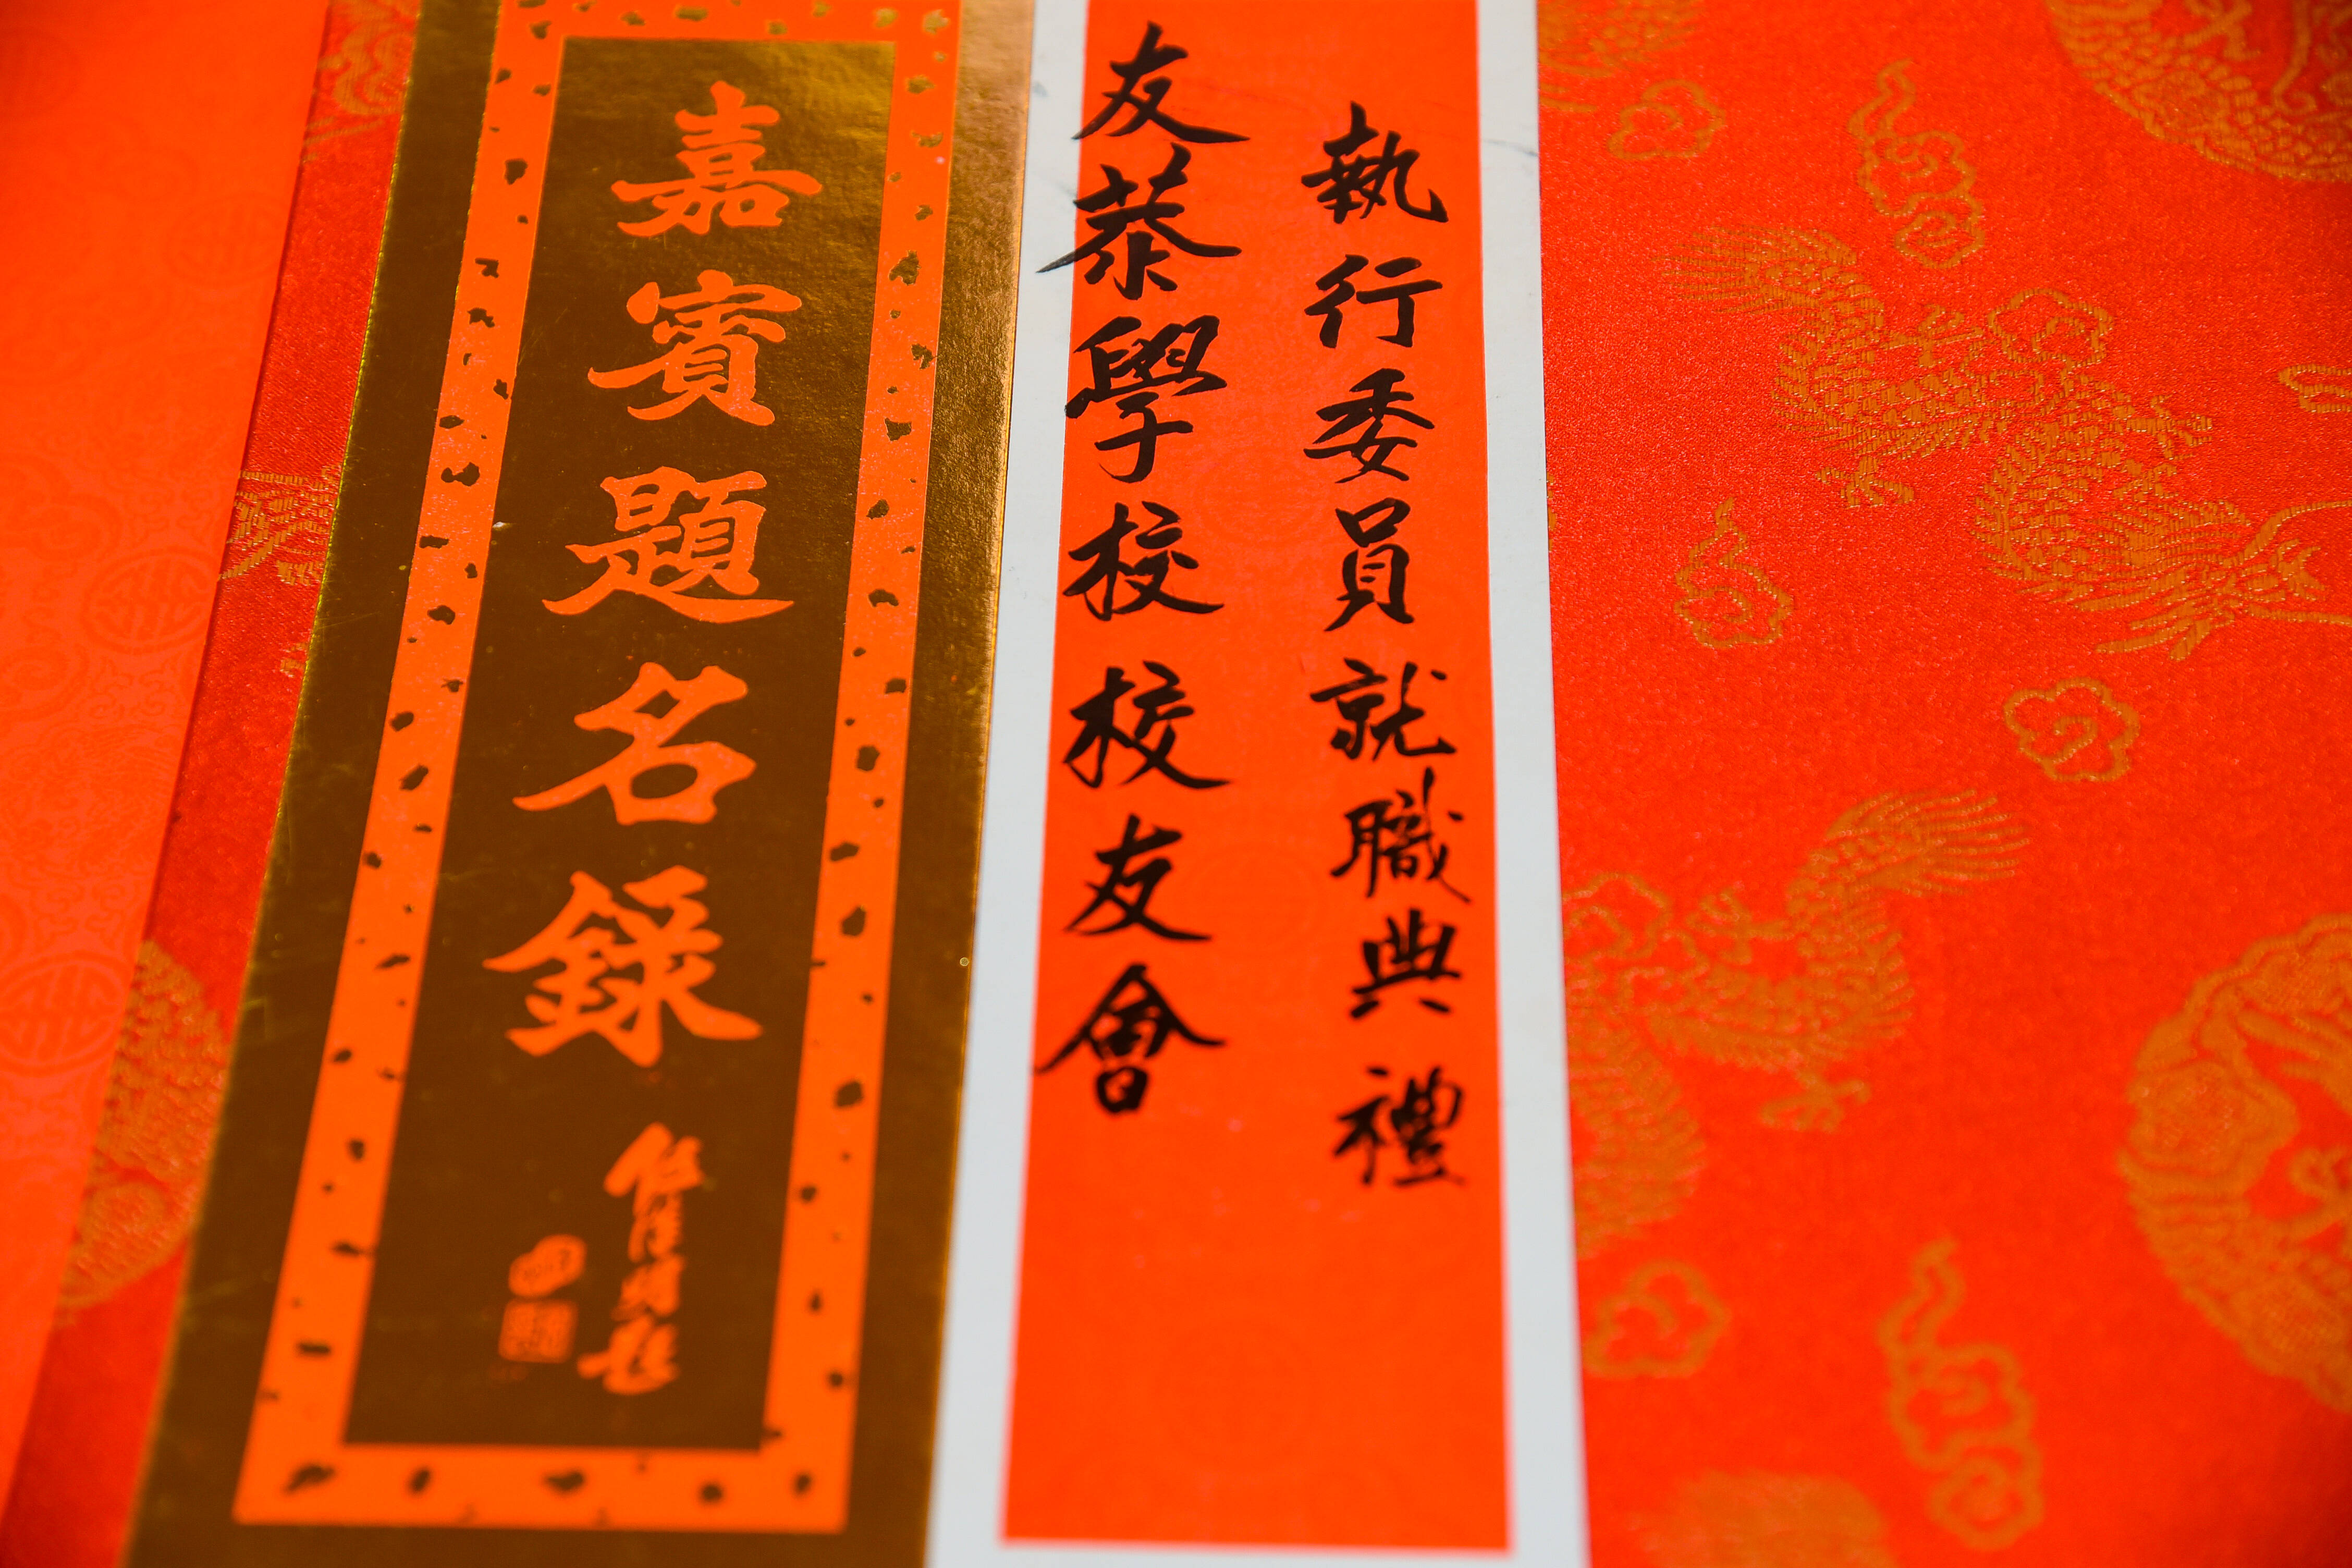 執行委員就職典禮
友恭學校校友會
嘉賓題名錄